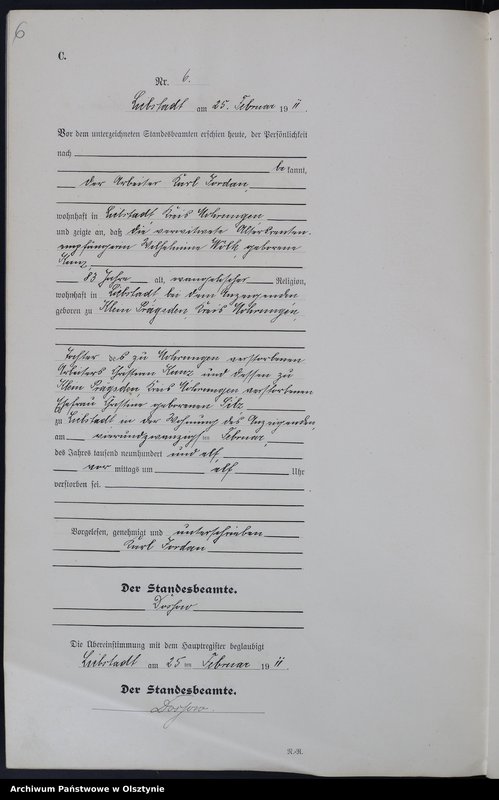 6
C.
Nr. 6.
Liebstadt am 25. Februar 1911.
Vor dem unterzeichneten Standesbeamten erschien heute, der Persönlichkeit
nach
bekannt,
der Arbeiter Karl Jordan,
wohnhaft in Liebstadt, Kreis Mohrungen
und zeigte an, daß die verwitwete Altersrenten-
empfängerin Wilhelmine Wölk, geborene
Kunz,
83 Jahre alt, evangelischer Religion,
wohnhaft in Liebstadt, bei dem Anzeigenden
geboren zu Klein Prägsden, Kreis Mohrungen,
Tochter des zu Mohrungen verstorbenen
Arbeiters Kunz und dessen zu
Klein Prägsden, Kreis Mohrungen verstorbenen
Ehefrau geborenen
zu Liebstadt in der Wohnung des Anzeigenden,
am vierundzwanzigsten Februar,
des Jahres tausend neunhundert und elf,
vor mittags um elf Uhr
verstorben sei.
Vorgelesen, genehmigt und unterschrieben
Karl Jordan
Der Standesbeamte.
Die Übereinstimmung mit dem Hauptregister beglaubigt
Liebstadt am 25ten Februar 1911.
Der Standesbeamte.
Archiwum Państwowe w Olsztynie